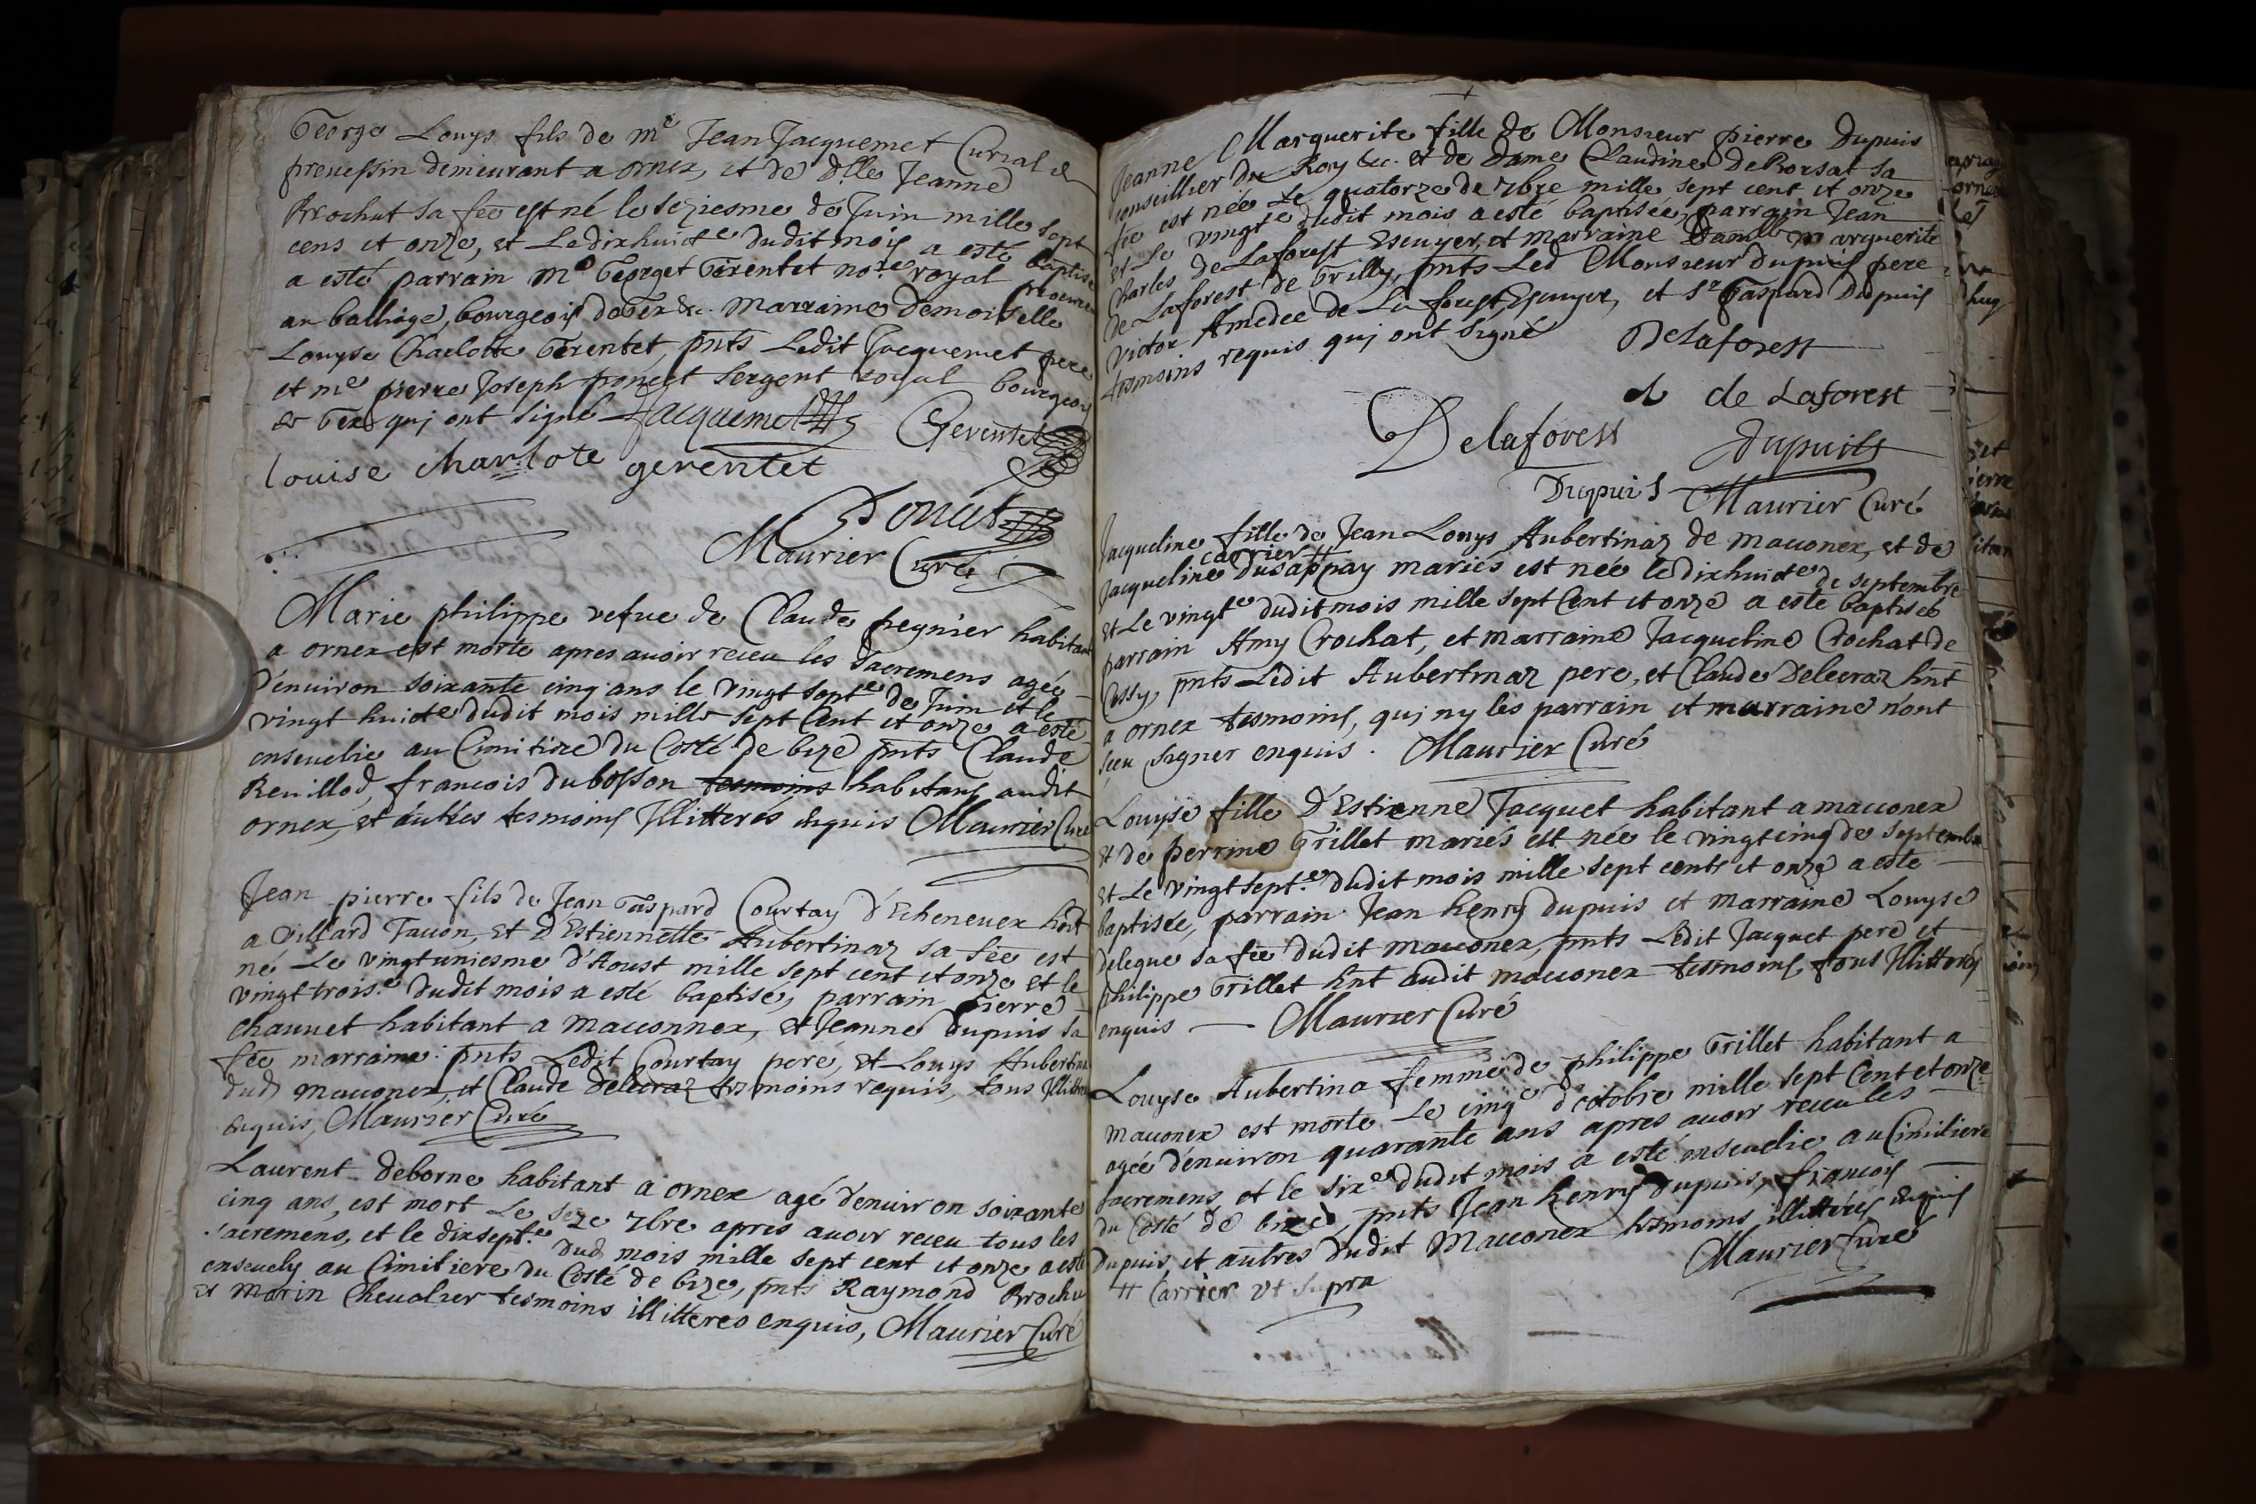 George Louys fils de me Jean Jacquemet Curial de
prevessin demeurant a ornex, et de dlle Jeanne
Brochut sa fee est né le seziesme de Juin mille sept
cens et onze, et Le dixhuicte dudit mois a esté baptisé
a esté parrain Me George Gerentet nore royal procureur
au balliage, bourgeois de Gex &c. Marraine Demoiselle
Louyse Charlotte Gerentet, pnts Ledit Jacquemet pere
et me pierre Joseph poncet sergent royal bourgeois
de Gex qui ont signé Jacquemet Gerentet
louise charlote gerentet
Poncet
Maurier Curé
Marie philippe vefue de Claude peynier habitant
a ornex est morte apres auoir receu les sacremens agée
d'enuiron soixante cinq ans le vingt septe de Juin et le
vingt huicte dudit mois mille sept Cent et onze a esté
enseuelie au Cimitiere du Costé de bize pnts Claude
Reuillod, francois du bosson tesmoins habitans audit
ornex, et autres tesmoins Illitterés enquis Maurier Curé
Jean pierre fils de Jean Gaspard Courtay d'Echeneuex hbt
a Villard Tacon, et d'Estiennette Aubertinaz sa fée est
né Le vingtuniesme d'Aoust mille sept cent et onze et le
vingt troise dudit mois a esté baptisé, parrain Pierre
chauuet habitant a Mauonnex, et Jeanne Dupuis sa
fée marraine. pnts Ledit Courtay pere, et Louys Aubertina
dud Mauonex, et Claude Delecraz tesmoins requis, tous Illitterés
enquis, Maurier Curé
Laurent deborne habitant a ornex agé denuiron soixante
cinq ans, est mort Le seze 7bre apres auoir receu tous les
sacremens, et le dixsepte dud mois mille sept cent et onze a esté
enseuely au Cimitiere du Costé de bize, pnts Raymond Brochu
et Marin Cheualier tesmoins illitteres enquis, Maurier Curé
Jeanne Marguerite fille de Monsieur pierre Dupuis
conseillier du Roy &c. et de Dame Claudine De Rorsat sa
fée est née Le quatorze de 7bre mille sept cent et onze
et Le vingte dudit mois a esté baptisée, parrain Jean
Charles de Laforest Escuyer, et marraine Damlle Marguerite
de Laforest de Grilly, pnts Led Monsieur dupuis pere
Victor Amedee de La forest, Escuyer, et Sr Gaspard Dupuis
tesmoins requis qui ont signé Delaforest
de Laforest
Delaforest dupuits
Dupuis Maurier Curé
Jacqueline fille de Jean Louys Aubertinaz de mauonex, et de
carrier #
Jacqueline Dusappay mariés est née le dixhuicte de septembre
et Le vingte dudit mois mille sept Cent et onze a esté baptisée
parrain Amy Crochat, et marraine Jacqueline Crochat de
Cessy, pnts Ledit Aubertinaz pere, et Claude Delecraz hbt
a ornex tesmoins, qui ny les parrain et marraine n'ont
sceu signer enquis. Maurier Curé
Louyse fille d'Estienne Jacquet habitant a mauonex
et de perrine Grillet mariés est née le vingtcinq de septembre
et Le vingt septe dudit mois mille sept cents et onze a este
baptisée, parrain Jean henry dupuis et Marraine Louyse
deleque sa fée dudit mauonex, pnts Ledit Jacquet pere et
philippe Grillet hbt audit mauonex tesmoins tous Illitterés
enquis Maurier Curé
Louyse Aubertina femme de philippe Grillet habitant a
Mauonex est morte Le cinqe d'octobre mille sept Cent et onze
agée d'enuiron quarante ans apres auoir receu les
sacremens et le sixe dudit mois a esté enseuelie au Cimitiere
du Costé de bize, pnts Jean henry dupuis, francois
Dupuis et autres dudit Mauonex tesmoins illitterés enquis
Maurier Curé
# Carrier vt supra